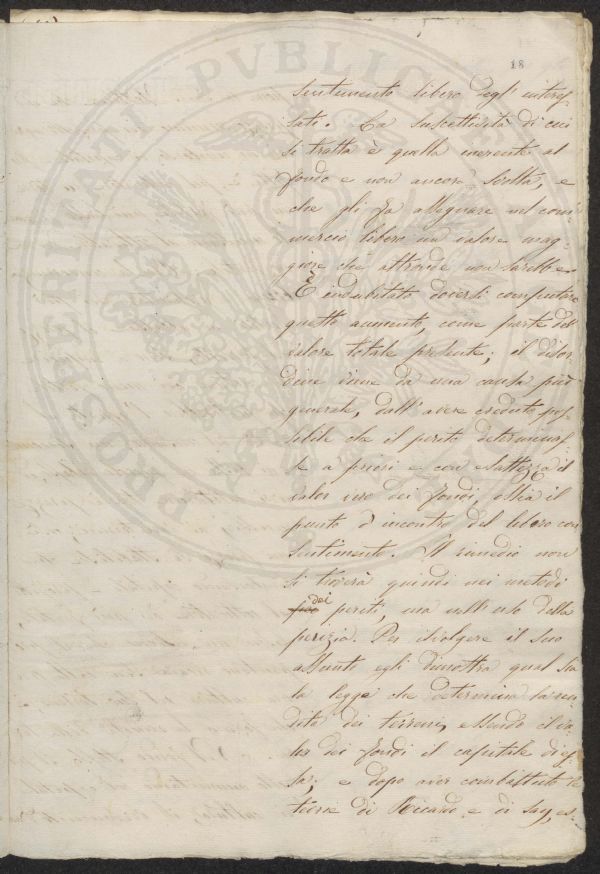 18
sentimento libero degl'interes-
sati. La suscettività di cui
si tratta è quella inerente al
fondo e non ancora svilta, e
che gli fa assegnare nel com-
mercio libero un valore mag-
giore che altronde non sarebbe.
È indubitato doversi computare
questo aumento, come parte del
valore totale presente; il disor-
dine viene da una causa più
generale, dall'avere creduto pos-
sibile che il perito determinas-
se a priori e con esattezza il
valor vero dei fondi, ossia il
punto d'incontro del libero con-
sentimento. Il rimedio non
si troverà quindi nei metodi
dei
periti, ma nell'uso della
perizia. Per isvolgere il suo
assunto egli dimostra qual sia
la legge che determina la ren-
dita dei terreni, essendo il va-
lor dei fondi il capitale di es-
sa; e dopo aver combattuto le
teorie di Ricardo e di Say, es-
PROSPERITATI PVBLICAE